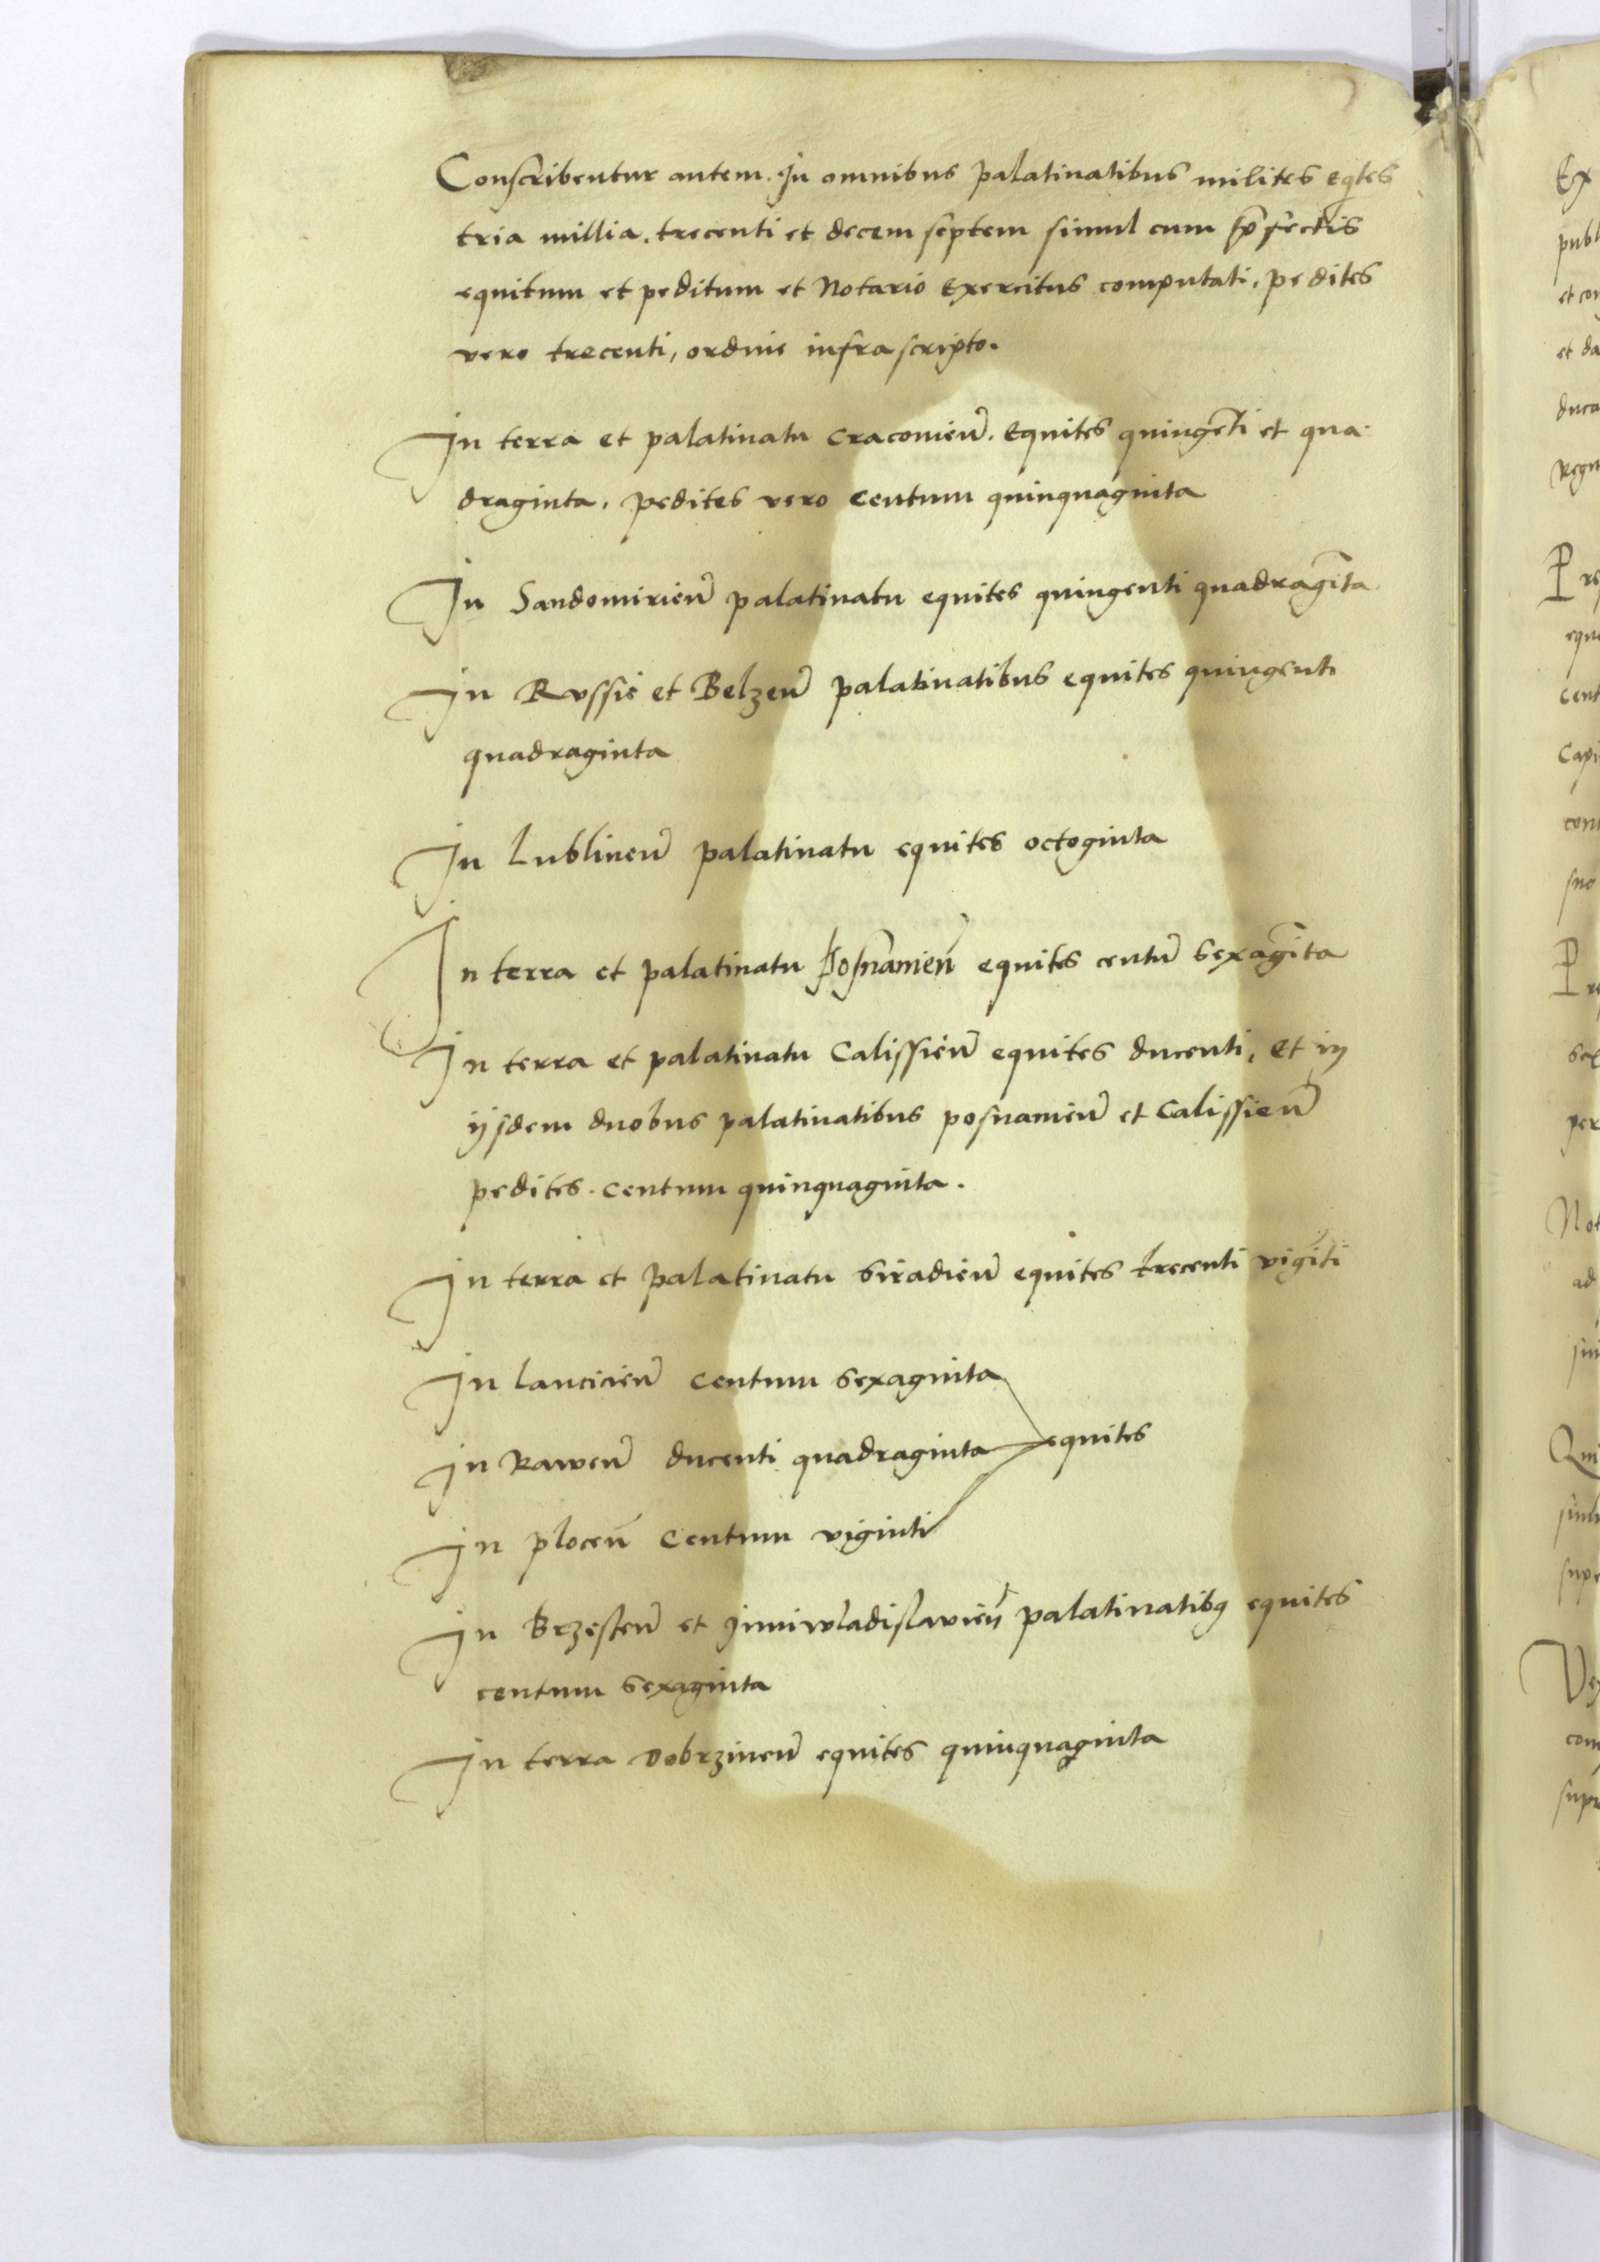 Conscribentur autem. In omnibus palatinatibus milites eq̃tes
tria millia. trecenti et decem septem simul cum p̃fectis
equitum et peditum et Notario Exercitus computati, pedites
vero trecenti, ordine infra scripto.
In terra et palatinatu Cracovieñ. Equites quingẽti et qua-
draginta, pedites vero centum quinquaginta
In Sandomirieñ palatinatu equites quingenti quadragĩta
In Russie et Belzeñ palatinatibus equites quingenti
quadraginta
In Lublineñ palatinatu equites octoginta
In terra et palatinatu Posnanieñ equites centũ sexagĩta
In terra et palatinatu Calissieñ equites ducenti, et in
ijsdem duobus palatinatibus posnanieñ et Calissieñ
pedites. centum quinquaginta.
In terra et palatinatu Siradieñ equites trecenti vigĩti
In lancicieñ centum sexaginta
In Raweñ ducenti quadraginta equites
In ploceñ centum viginti
In Brzesteñ et Juniwladislavieñ palatinatibꝰ equites
centum sexaginta
In terra Dobrzineñ equites quinquaginta
Ex
publ
et
et da
duca
Regn
Pre
equi
cent
Capi
suo
sex
per
Not
ad
Qui
supr
com
supr